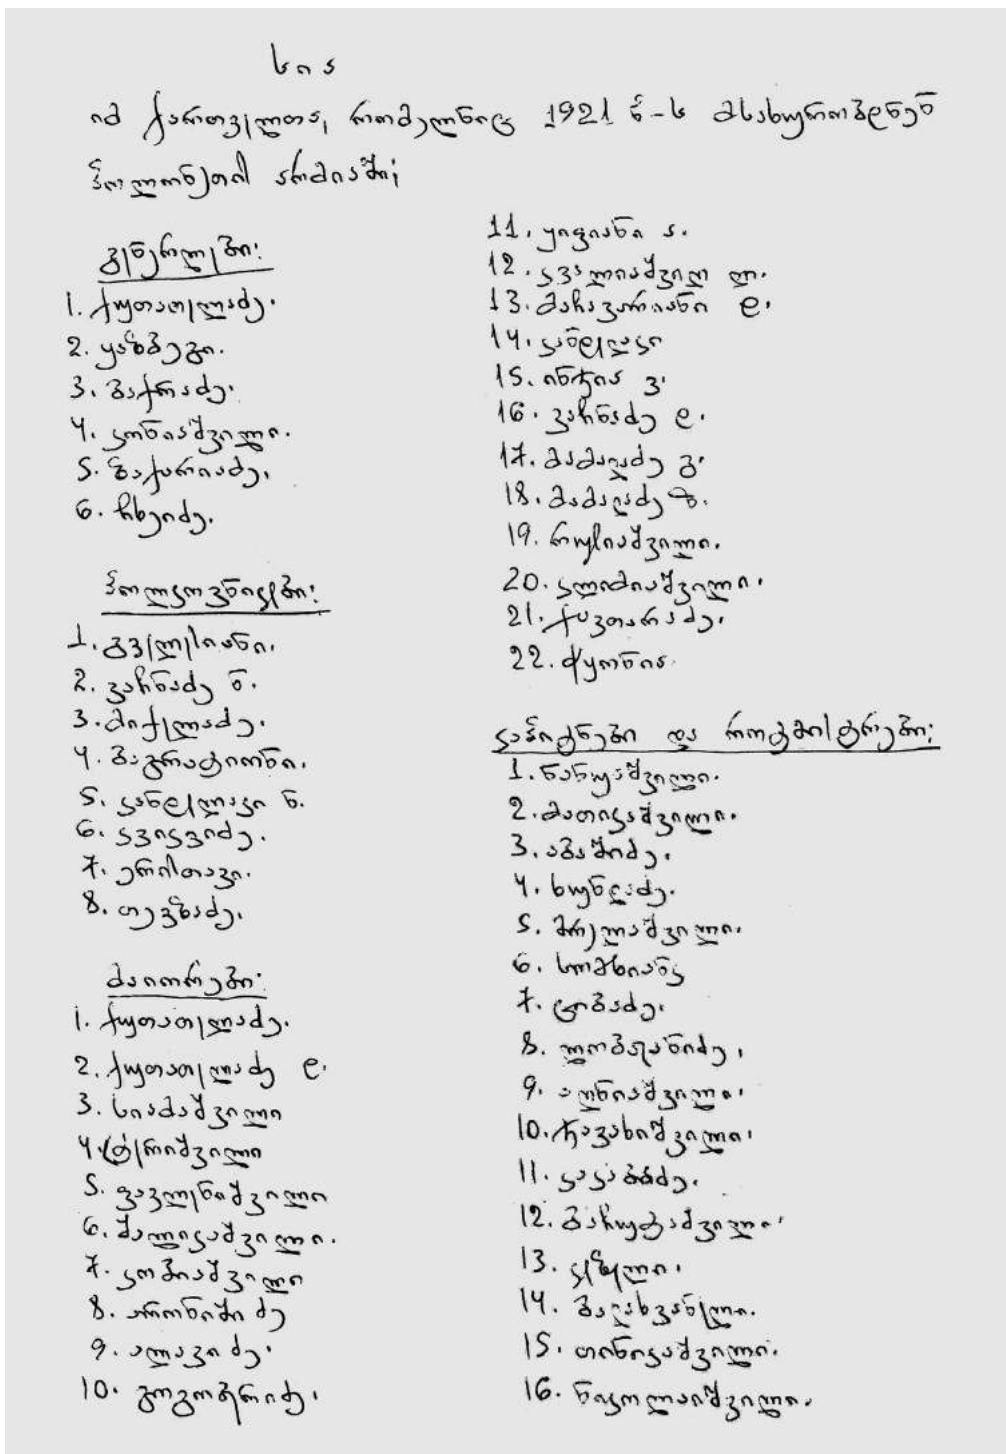 სია
იმ ქართველთა, რომელნიც 1921 წ-ს მსახურობდნენ
პოლონეთის არმიაში;
გენერლები:
1. ქუთათელაძე.
2. ყაზბეგი.
3. ბაქრაძე.
4. კონიაშვილი.
5. ზაქარიაძე.
6. ჩხეიძე.
პოლკოვნიკები:
1. გველესიანი.
2. ვაჩნაძე ნ.
3. მიქელაძე.
4. ბაგრატიონი.
5. კანდელაკი ნ.
6. კვიკვიძე.
7. ერისთავი.
8. თევზაძე.
მაიორები:
1. ქუთათელაძე.
2. ქუთათელაძე დ.
3. სიამაშვილი
4.
5. პავლენიშვილი
6. შალიკაშვილი.
7. კობიაშვილი
8. არონიშიძე
9. ალავიძე.
10. გოგობერიძე.
11. ყიფიანი ა.
12. კვალიაშვილი ლ.
13. მაჩავარიანი დ.
14. კანდელაკი
15. ინჯია ვ.
16. ვაჩნაძე დ.
17. მამალაძე გ.
18. მამალაძე
19. რუსიაშვილი.
20. კლიმიაშვილი.
21. ქავთარაძე.
22. ქყონია.
კაპიტნები და როტმისტრები:
1. ნანუაშვილი.
2. მათიკაშვილი.
3. აბაშიძე.
4. ხუნდაძე.
5. მრელაშვილი.
6. სომხიანც
7. ცობაძე.
8. ლობჟანიძე.
9. ალნიაშვილი.
10. ჯავახიშვილი.
11. კაკაბაძე.
12. ბაჩუტაშვილი.
13. კესელი.
14. ბალახვანელი.
15. თინიკაშვილი.
16. ნიკოლაიშვილი.